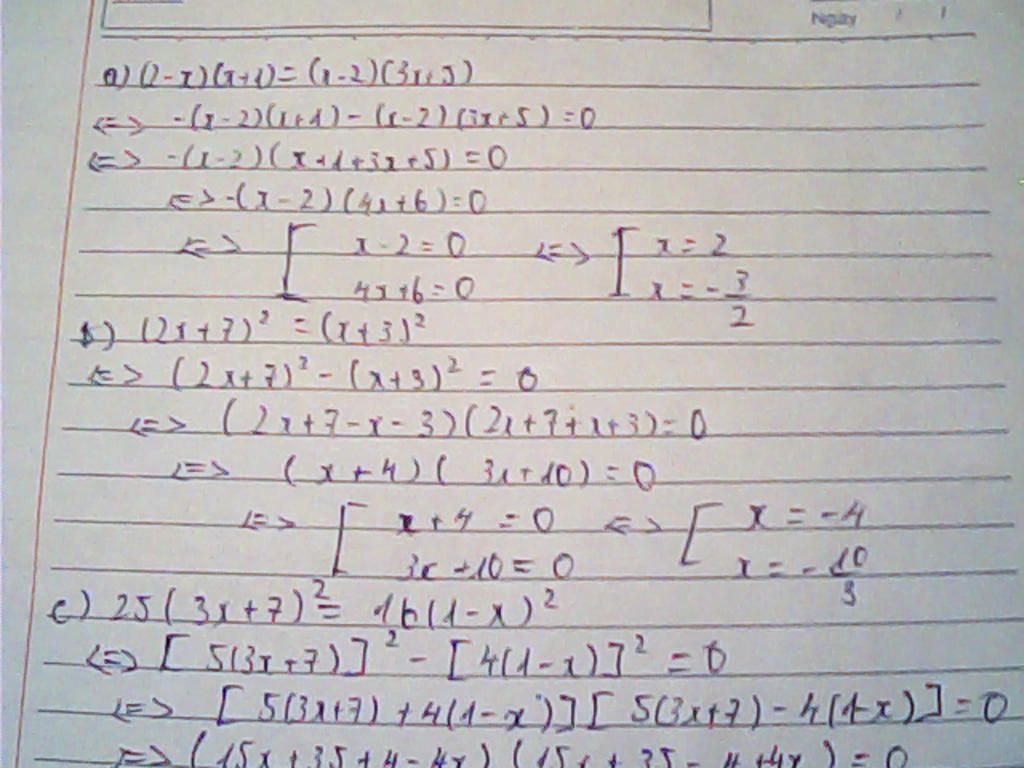 Ngày / /
a) (2-x)(x+1) = (x-2)(3x+5)
<=> -(x-2)(x+1) - (x-2)(3x+5) = 0
<=> -(x-2)(x+1+3x+5) = 0
<=> -(x-2)(4x+6) = 0
<=> [ x-2=0 <=> [ x=2
4x+6=0 x=-3/2
b) (2x+7)² = (x+3)²
<=> (2x+7)² - (x+3)² = 0
<=> (2x+7-x-3)(2x+7+x+3) = 0
<=> (x+4)(3x+10) = 0
<=> [ x+4 = 0 <=> [ x = -4
3x+10 = 0 x = -10/3
c) 25(3x+7)² = 16(1-x)²
<=> [5(3x+7)]² - [4(1-x)]² = 0
<=> [5(3x+7)+4(1-x)][5(3x+7)-4(1-x)] = 0
<=> (15x+35+4-4x)(15x+35-4+4x) = 0